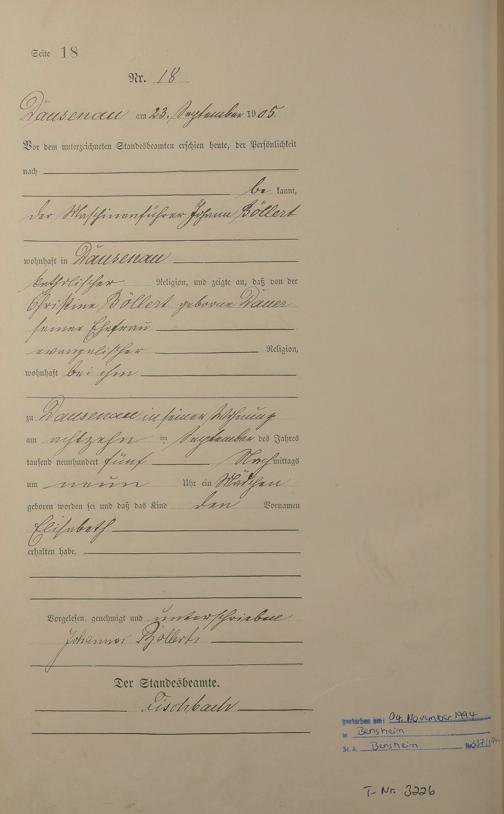 Seite 18
Nr. 18
Dausenau am 23. September 1905.
Vor dem unterzeichneten Standesbeamten erschien heute, der Persönlichkeit
nach
be kannt,
der Maschinenführer Johann Böllert
wohnhaft in Dausenau
katholischer Religion, und zeigte an, daß von der
Christine Böllert geborene Dauer
seiner Ehefrau
evangelischer Religion,
wohnhaft bei ihm
zu Dausenau in seiner Wohnung
am achtzehn ten September des Jahres
tausend neunhundert fünf Nach mittags
um neun Uhr ein Mädchen
geboren worden sei und daß das Kind den Vornamen
Elisabeth
erhalten habe.
Vorgelesen, genehmigt und unterschrieben
Johannes Böllert
Der Standesbeamte.
Fischbach
gestorben am: 04. November 1994
in Bensheim
St. A. Bensheim
T-Nr. 3226